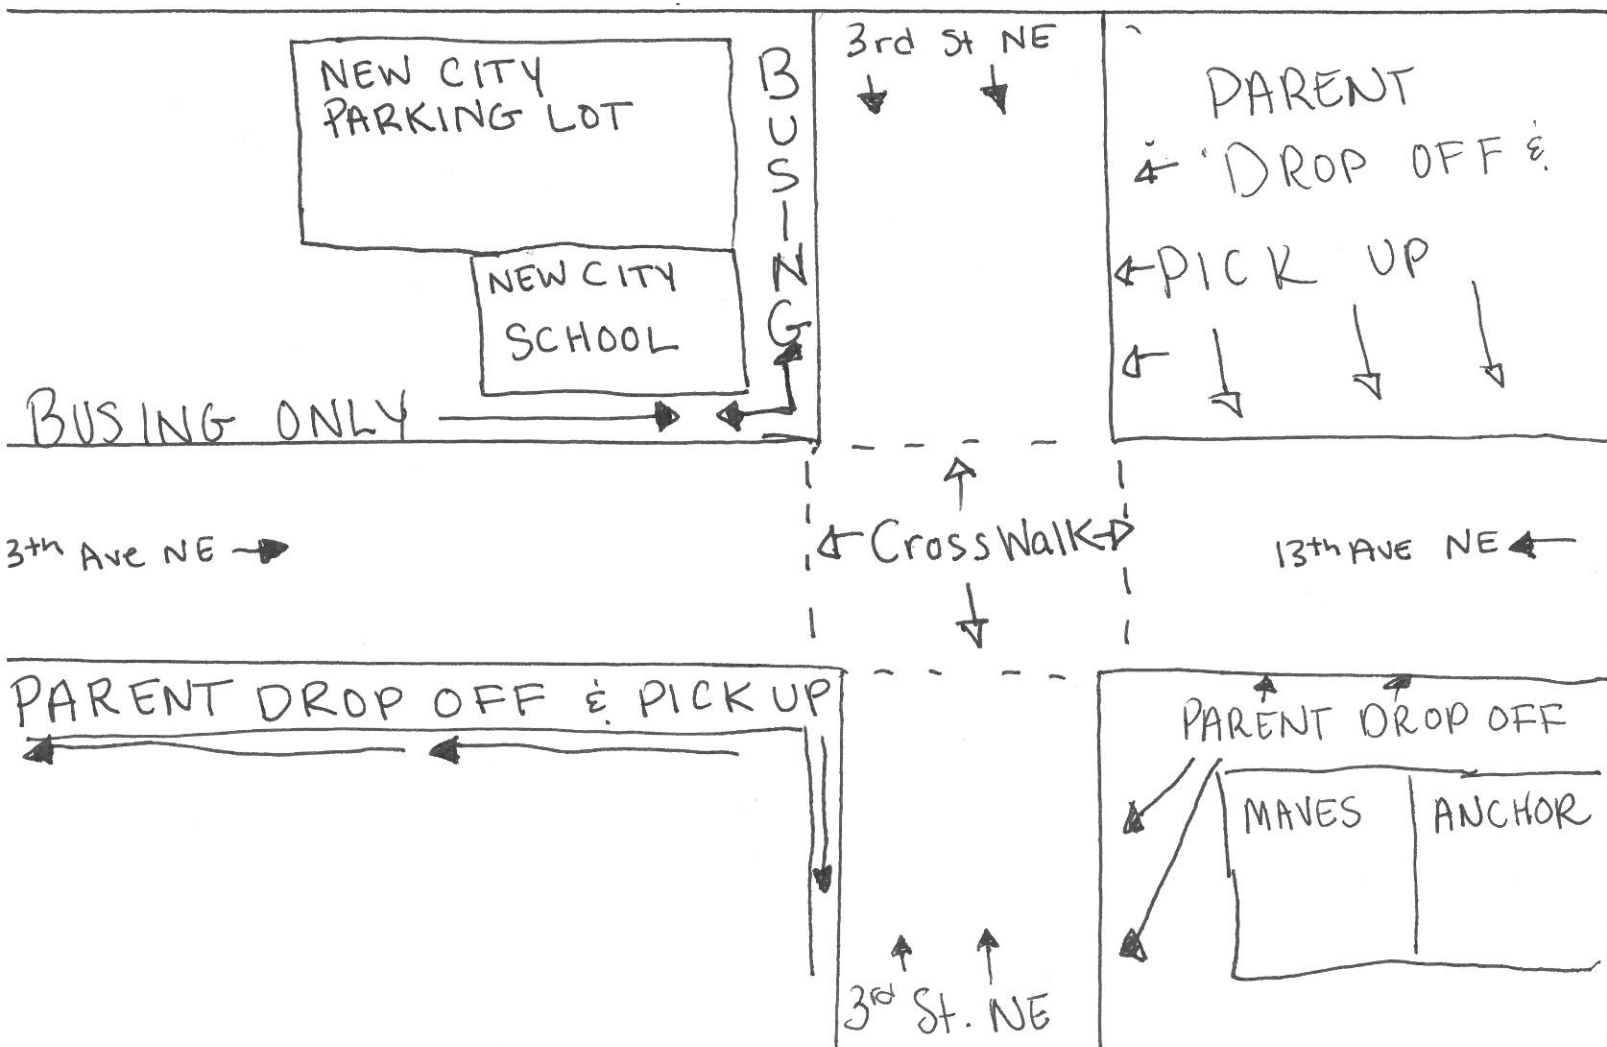 NEW CITY
PARKING LOT
BUSING
3rd St NE
PARENT
DROP OFF &
PICK UP
NEW CITY
SCHOOL
BUSING ONLY
3th Ave NE
CrossWalk
13th AVE NE
PARENT DROP OFF & PICK UP
PARENT DROP OFF
MAVES
ANCHOR
3rd St. NE